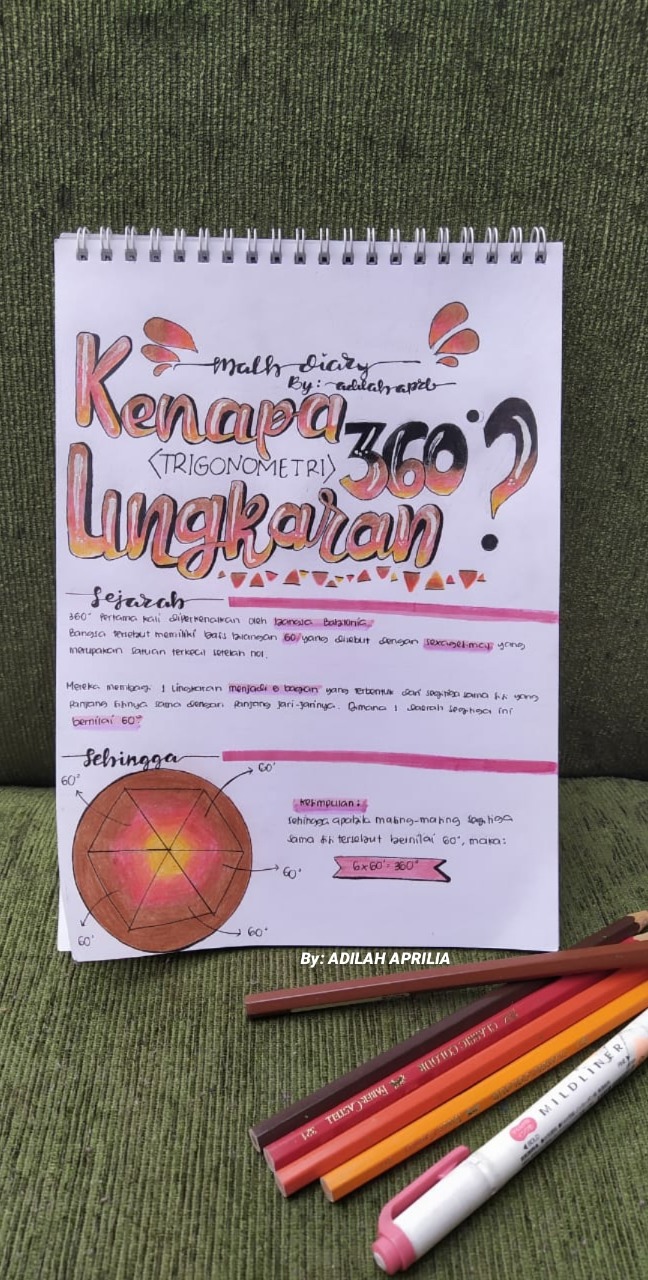 Math diary
By: adilah aprl
Kenapa
<TRIGONOMETRI>
360°?
Lingkaran
Sejarah
360° Pertama kali diperkenalkan oleh bangsa Babilonia.
Bangsa tersebut memiliki basis bilangan 60 yang disebut dengan yang
merupakan satuan terkecil setelah nol.
Mereka membagi 1 lingkaran menjadi 6 bagian yang terbentuk dari segitiga sama sisi yang
panjang sisinya sama dengan panjang jari-jarinya. Dimana 1 daerah segitiga ini
bernilai 60°
Sehingga
60°
60°
60°
60°
60°
Kesimpulan:
Sehingga apabila masing-masing segitiga
sama sisi tersebut bernilai 60°, maka:
6x60°=360°
By: ADILAH APRILIA
CLASSIC COLOUR
FABER-CASTELL
321
MILDLINER